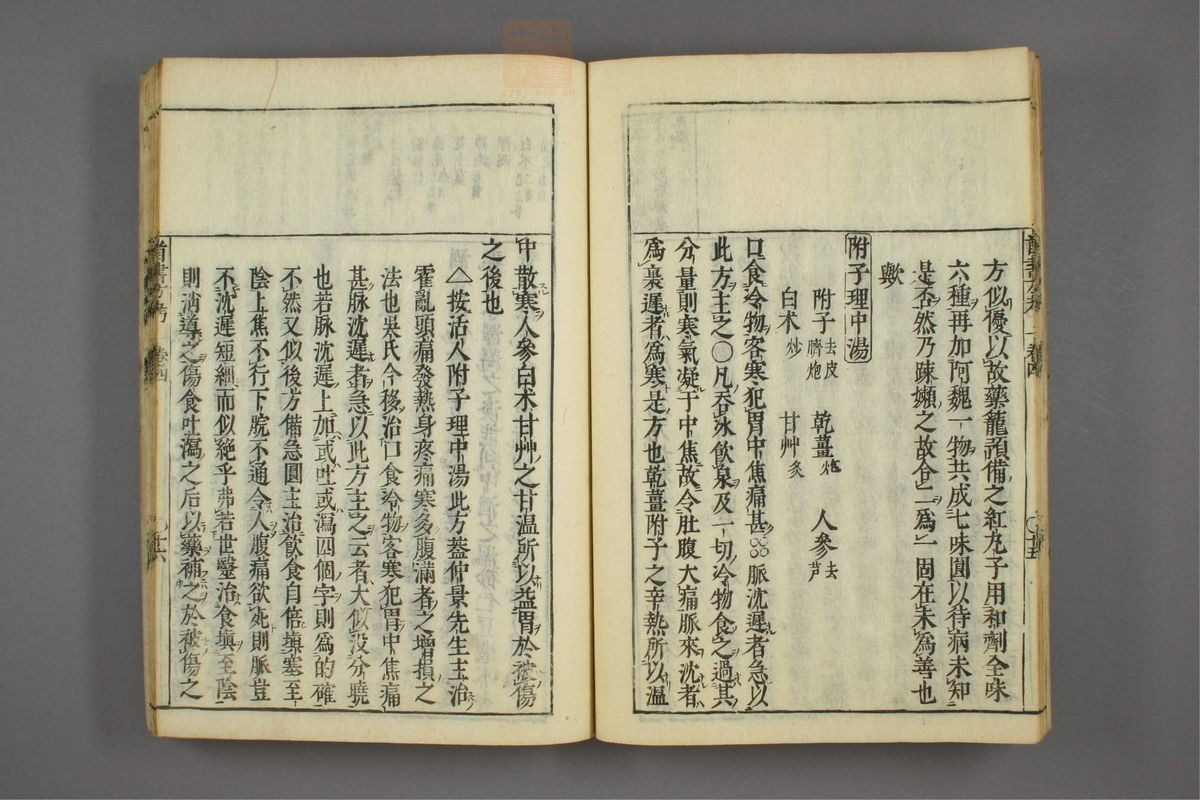 方似優以故藥籠預備之紅丸子用和劑全味
六種再加阿魏一物共成七味圓以待病未知
是否然乃疎嬾之故合二爲一固在未爲善也
歟
附子理中湯
附子去皮臍炮 乾薑炮 人參去芦
白朮炒 甘艸炙
口食冷物客寒犯胃中焦痛甚脈沈遲者急以
此方主之○凡吞氷飲泉及一切冷物食之過其
分量則寒氣凝于中焦故令肚腹大痛脈來沈者
爲裏遲者爲寒是方也乾薑附子之辛熱所以温
中散寒人參白朮甘艸之甘温所以益胃於被傷
之後也
△按活人附子理中湯此方蓋仲景先生主治
霍亂頭痛發熱身疼痛寒多腹滿者之增損之
法也吳氏今移治口食冷物客寒犯胃中焦痛
甚脉沈遲者急以此方主之云者大似沒分曉
也若脉沈遲上加或吐或瀉四個字則爲的確
不然又似後方備急圓主治飲食自倍塡塞至
陰上焦不行下脘不通令人腹痛欲死則脈豈
不沈遲短細而似絶乎弗若世醫治食塡至陰
則消導之傷食吐瀉之后以藥補之於被傷之
卷四
十五
卷四
十六